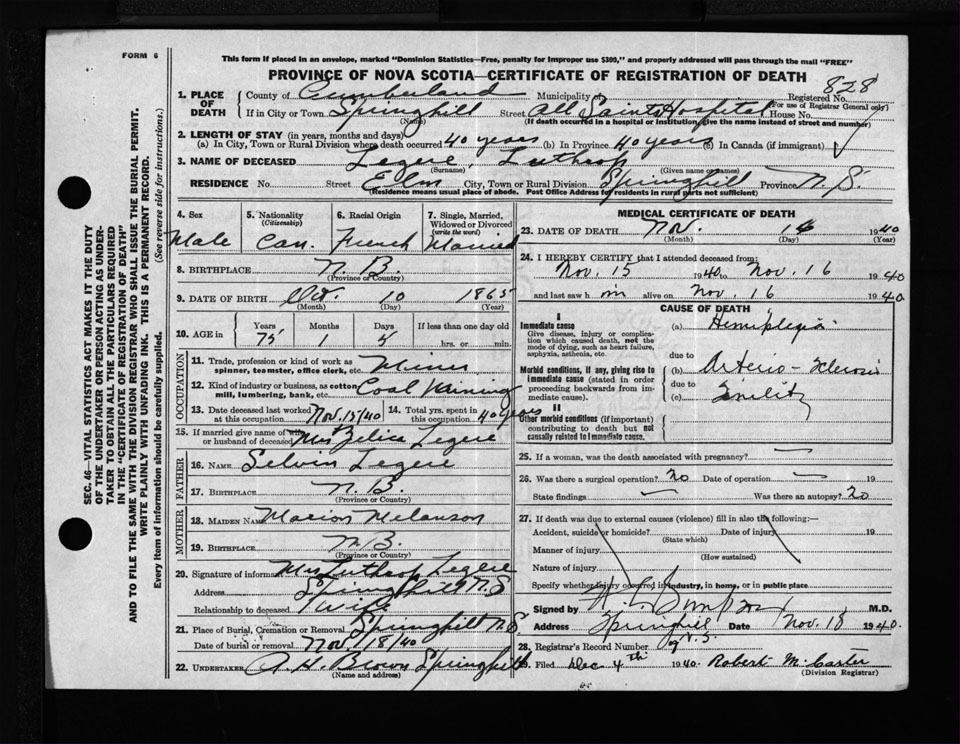 FORM 6
This form if placed in an envelope, marked "Dominion Statistics—Free, penalty for improper use $300," and properly addressed will pass through the mail "FREE"
PROVINCE OF NOVA SCOTIA—CERTIFICATE OF REGISTRATION OF DEATH
828
1. PLACE OF DEATH
County of Cumberland Municipality of Registered No.
(For use of Registrar General only)
If in City or Town Springhill Street All Saints Hospital House No.
(Name) (If death occurred in a hospital or institution, give the name instead of street and number)
2. LENGTH OF STAY (in years, months and days)
(a) In City, Town or Rural Division where death occurred 40 years (b) In Province 40 years (c) In Canada (if immigrant)
3. NAME OF DECEASED Legere, Luthrop
(Surname) (Given name or names)
RESIDENCE No. Street Elm City, Town or Rural Division Springhill Province N.S.
(Residence means usual place of abode. Post Office Address for Residents in rural parts not sufficient)
4. Sex 5. Nationality (Citizenship) 6. Racial Origin 7. Single, Married, Widowed or Divorced (write the word)
Male Can. French Married
8. BIRTHPLACE N.B.
(Province or Country)
9. DATE OF BIRTH Oct. 10 1865
(Month) (Day) (Year)
10. AGE in Years Months Days If less than one day old
75 1 hrs. or min.
OCCUPATION
11. Trade, profession or kind of work as spinner, teamster, office clerk, etc. Miner
12. Kind of industry or business, as cotton mill, lumbering, bank, etc. Coal Mining
13. Date deceased last worked at this occupation Nov. 15/40 14. Total yrs. spent in this occupation 40 years
15. If married give name of wife or husband of deceased Mrs Legere
FATHER
16. NAME Legere
17. BIRTHPLACE N.B.
(Province or Country)
MOTHER
18. MAIDEN NAME Marion Melanson
19. BIRTHPLACE N.B.
(Province or Country)
20. Signature of informant Mrs Luthrop Legere
Address Springhill N.S
Relationship to deceased Wife
21. Place of Burial, Cremation or Removal Springhill N.S.
Date of burial or removal Nov. 18/40
22. UNDERTAKER A. H. Brown Springhill
(Name and address)
MEDICAL CERTIFICATE OF DEATH
23. DATE OF DEATH Nov. 16 1940
(Month) (Day) (Year)
24. I HEREBY CERTIFY that I attended deceased from:
Nov. 15 1940 to Nov. 16 1940
and last saw h im alive on Nov. 16 1940
CAUSE OF DEATH
I
Immediate cause
Give disease, injury or complication which caused death, not the mode of dying, such as heart failure, asphyxia, asthenia, etc.
(a) Hemiplegia
due to
Morbid conditions, if any, giving rise to immediate cause (stated in order proceeding backwards from immediate cause).
(b) Arterio-Sclerosis
due to
(c) Senility
II
Other morbid conditions (if important) contributing to death but not causally related to immediate cause.
25. If a woman, was the death associated with pregnancy? —
26. Was there a surgical operation? no Date of operation —
State findings — Was there an autopsy? no
27. If death was due to external causes (violence) fill in also the following:—
Accident, suicide or homicide? Date of injury 19
(State which)
Manner of injury
(How sustained)
Nature of injury
Specify whether injury occurred in industry, in home, or in public place
Signed by M.D.
Address Springhill Date Nov. 18 1940.
28. Registrar's Record Number
29. Filed Dec 4th 1940. Robert McCarter
(Division Registrar)
SEC. 46—VITAL STATISTICS ACT MAKES IT THE DUTY
OF THE UNDERTAKER OR PERSON ACTING AS UNDER-
TAKER TO OBTAIN ALL THE PARTICULARS REQUIRED
IN THE "CERTIFICATE OF REGISTRATION OF DEATH"
AND TO FILE THE SAME WITH THE DIVISION REGISTRAR WHO SHALL ISSUE THE BURIAL PERMIT.
WRITE PLAINLY WITH UNFADING INK. THIS IS A PERMANENT RECORD.
Every item of information should be carefully supplied. (See reverse side for instructions.)